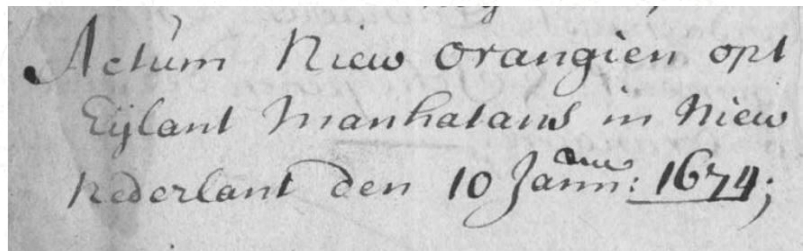 Actum Niew orangien opt
Eijlant Manhatans in Niew
Nederlant den 10 Jann: 1674;